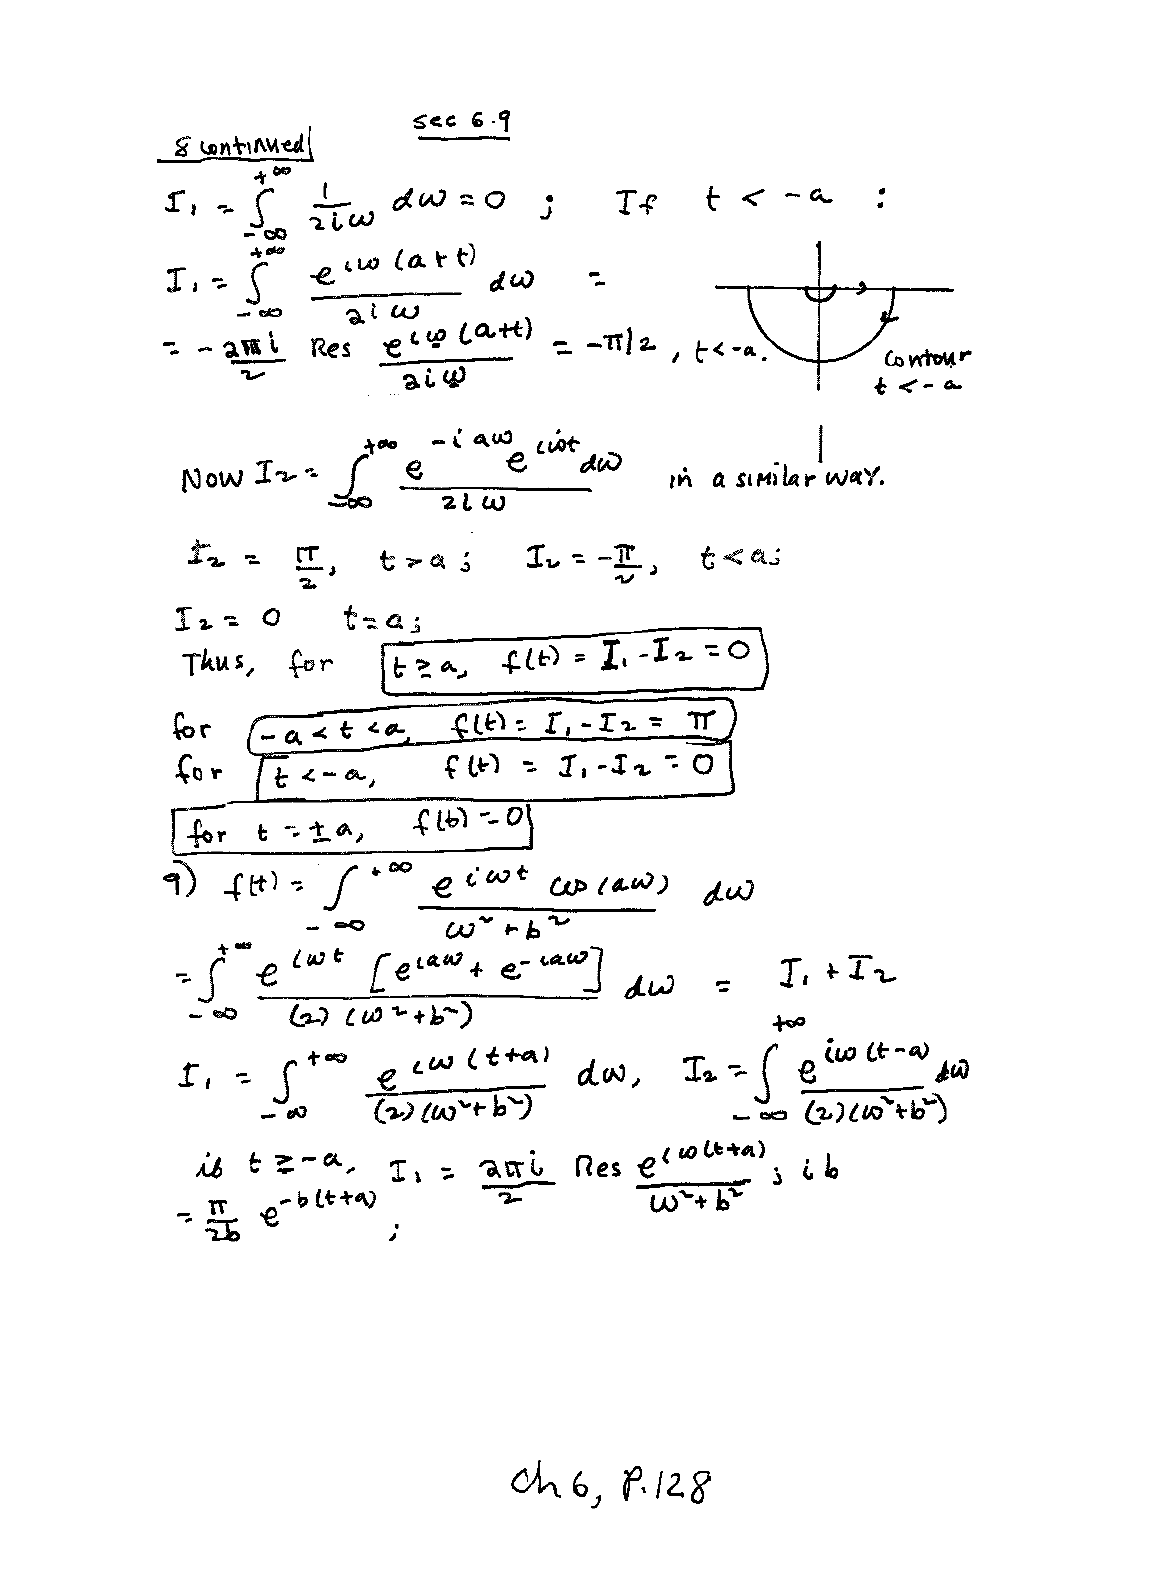 sec 6.9
8 continued
I₁ = ∫_{-∞}^{+∞} 1/(2iω) dω = 0 ; If t < -a :
I₁ = ∫_{-∞}^{+∞} e^{iω(a+t)}/(2iω) dω =
= -2πi/2 Res e^{iω(a+t)}/(2iω) = -π/2 , t<-a.
contour
t < -a
Now I₂ = ∫_{-∞}^{+∞} e^{-iaω} e^{iωt}/(2iω) dω in a similar way.
I₂ = π/2, t > a ; I₂ = -π/2, t < a;
I₂ = 0 t = a;
Thus, for t ≥ a, f(t) = I₁ - I₂ = 0
for -a < t < a, f(t) = I₁ - I₂ = π
for t < -a, f(t) = I₁ - I₂ = 0
for t = ±a, f(t) = 0
9) f(t) = ∫_{-∞}^{+∞} e^{iωt} cos(aω)/(ω²+b²) dω
= ∫_{-∞}^{+∞} e^{iωt} [e^{iaω} + e^{-iaω}]/((2)(ω²+b²)) dω = I₁ + I₂
I₁ = ∫_{-∞}^{+∞} e^{iω(t+a)}/((2)(ω²+b²)) dω, I₂ = ∫_{-∞}^{+∞} e^{iω(t-a)}/((2)(ω²+b²)) dω
if t ≥ -a, I₁ = 2πi/2 Res e^{iω(t+a)}/(ω²+b²) ; ib
= π/2b e^{-b(t+a)} ;
Ch 6, P.128